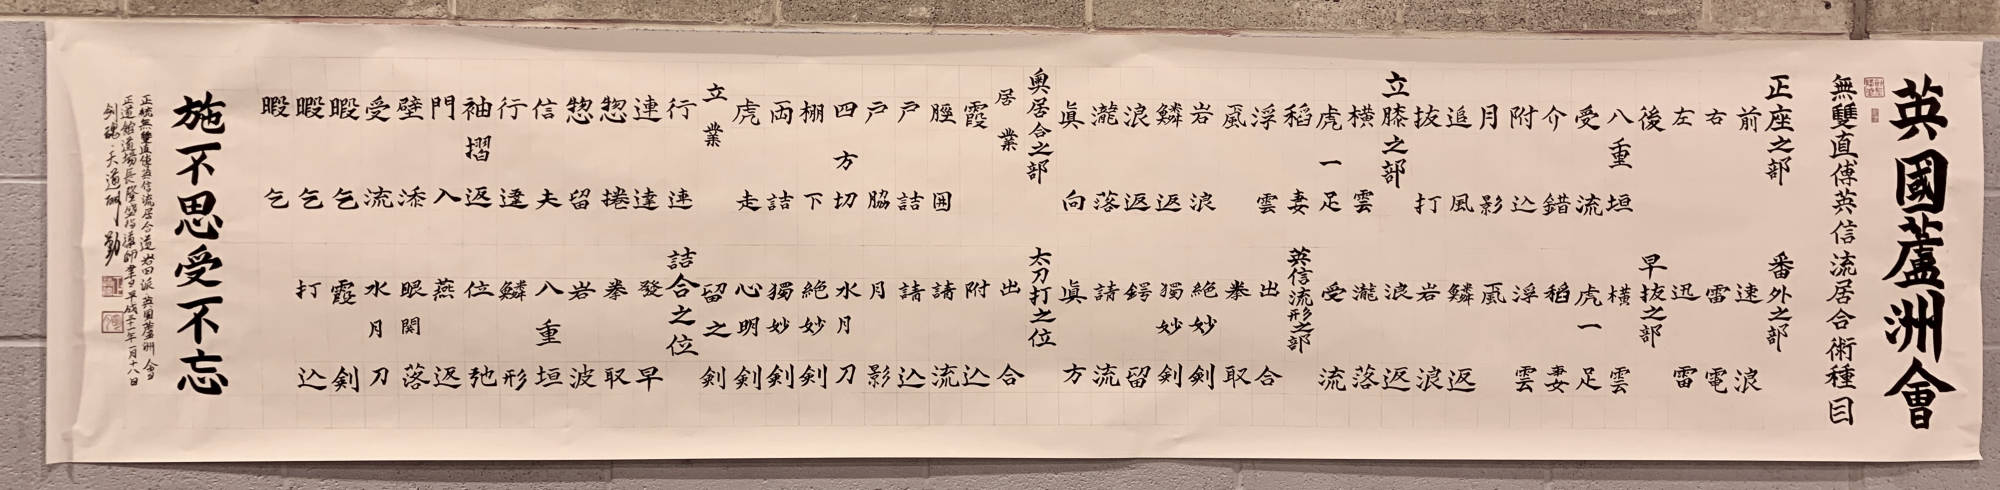 英國蘆洲會
無雙直傳英信流居合術種目
正座之部
前
右
左
後
八重垣
受流
介錯
附込
月影
追風
抜打
立膝之部
横雲
虎一足
稲妻
浮雲
颪
岩浪
鱗返
浪返
瀧落
眞向
奥居合之部
居業
霞
脛囲
戸詰
戸脇
四方切
棚下
両詰
虎走
立業
行連
連達
惣捲
惣留
信夫
行違
袖摺返
門入
壁添
受流
暇乞
暇乞
暇乞
番外之部
速浪
雷電
迅雷
早抜之部
横雲
虎一足
稲妻
浮雲
颪
鱗返
岩浪
浪返
瀧落
受流
英信流形之部
出合
拳取
絶妙剣
獨妙剣
鍔留
請流
眞方
太刀打之位
出合
附込
請流
請込
月影
水月刀
絶妙剣
獨妙剣
心明剣
留之剣
詰合之位
發早
拳取
岩波
八重垣
鱗形
位弛
燕返
眼関落
水月刀
霞剣
打込
施不思受不忘
正統無雙直傳英信流居合道岩田派 英国蘆洲會
正道館道場長 平成三十一年一月十八日